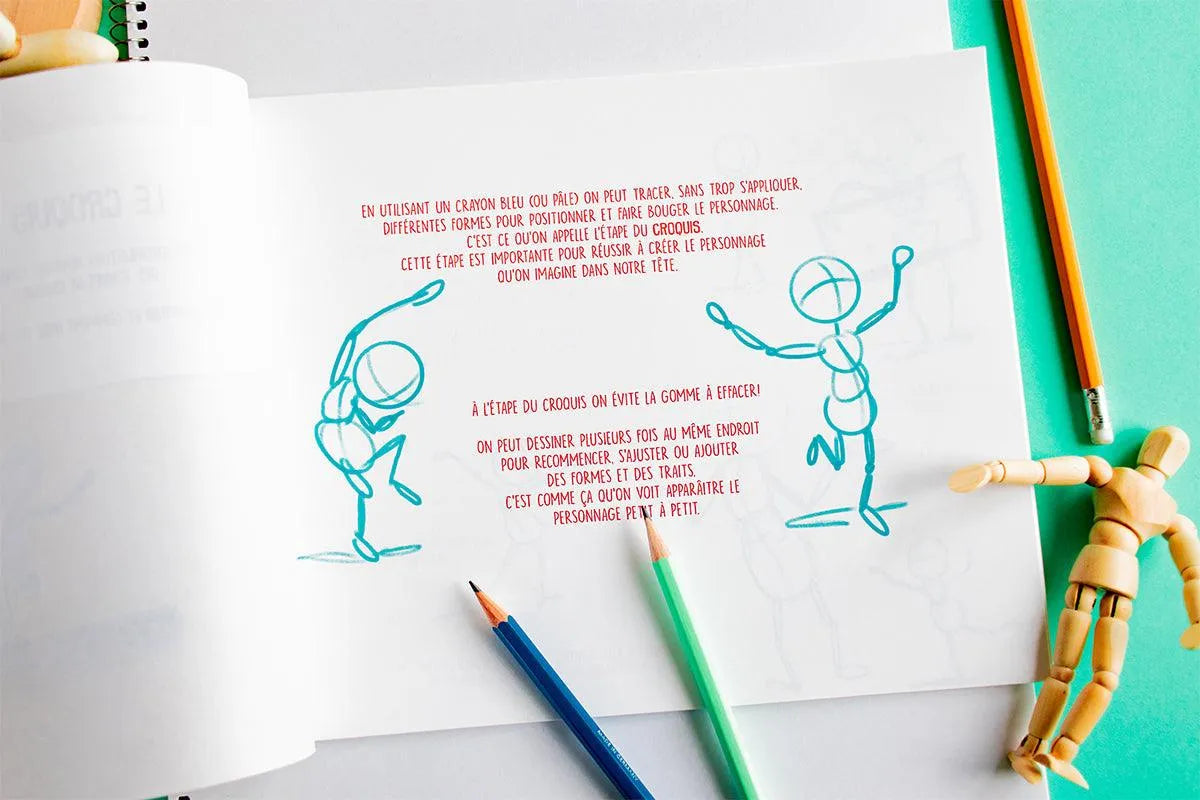 EN UTILISANT UN CRAYON BLEU (OU PÂLE) ON PEUT TRACER, SANS TROP S'APPLIQUER,
DIFFÉRENTES FORMES POUR POSITIONNER ET FAIRE BOUGER LE PERSONNAGE.
C'EST CE QU'ON APPELLE L'ÉTAPE DU CROQUIS.
CETTE ÉTAPE EST IMPORTANTE POUR RÉUSSIR À CRÉER LE PERSONNAGE
QU'ON IMAGINE DANS NOTRE TÊTE.
À L'ÉTAPE DU CROQUIS ON ÉVITE LA GOMME À EFFACER!
ON PEUT DESSINER PLUSIEURS FOIS AU MÊME ENDROIT
POUR RECOMMENCER, S'AJUSTER OU AJOUTER
DES FORMES ET DES TRAITS.
C'EST COMME ÇA QU'ON VOIT APPARAÎTRE LE
PERSONNAGE PETIT À PETIT.
LE CROQUIS
MADE IN GERMANY